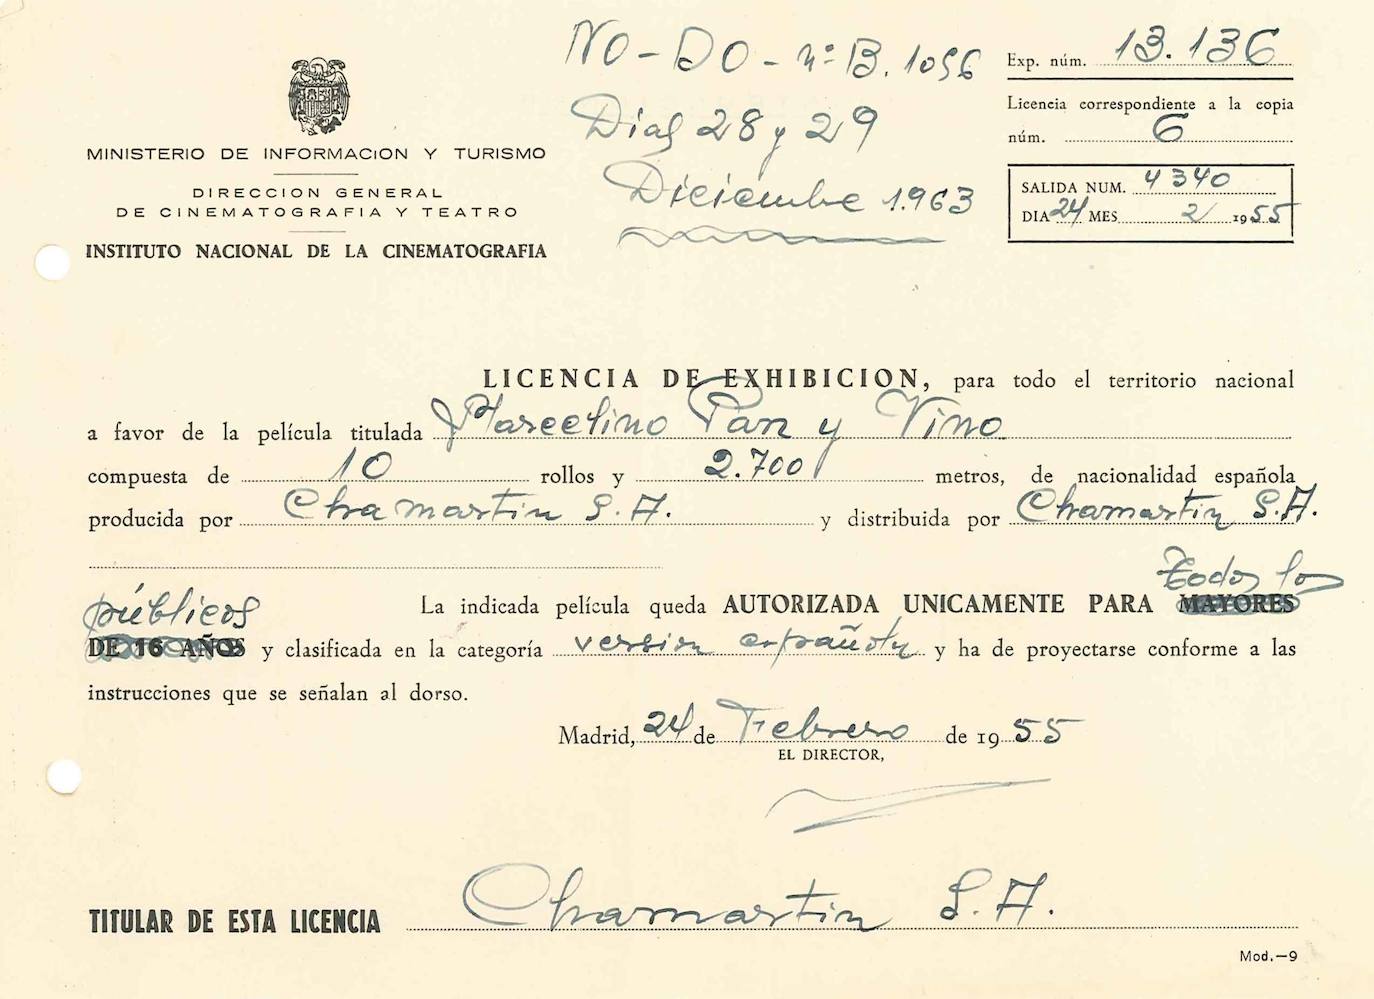 NO-DO-nº B. 1056
Días 28 y 29
Diciembre 1.963
Exp. núm. 13.136
Licencia correspondiente a la copia
núm. 6
SALIDA NUM. 4340
DIA 24 MES 2 1955
MINISTERIO DE INFORMACION Y TURISMO
DIRECCION GENERAL
DE CINEMATOGRAFIA Y TEATRO
INSTITUTO NACIONAL DE LA CINEMATOGRAFIA
LICENCIA DE EXHIBICION, para todo el territorio nacional
a favor de la película titulada Marcelino Pan y Vino
compuesta de 10 rollos y 2.700 metros, de nacionalidad española
producida por Chamartin S.A. y distribuida por Chamartin S.A.
La indicada película queda AUTORIZADA UNICAMENTE PARA MAYORES todos los
públicos DE 16 AÑOS y clasificada en la categoría version española y ha de proyectarse conforme a las
instrucciones que se señalan al dorso.
Madrid, 24 de Febrero de 1955
EL DIRECTOR,
TITULAR DE ESTA LICENCIA Chamartin S.A.
Mod.—9